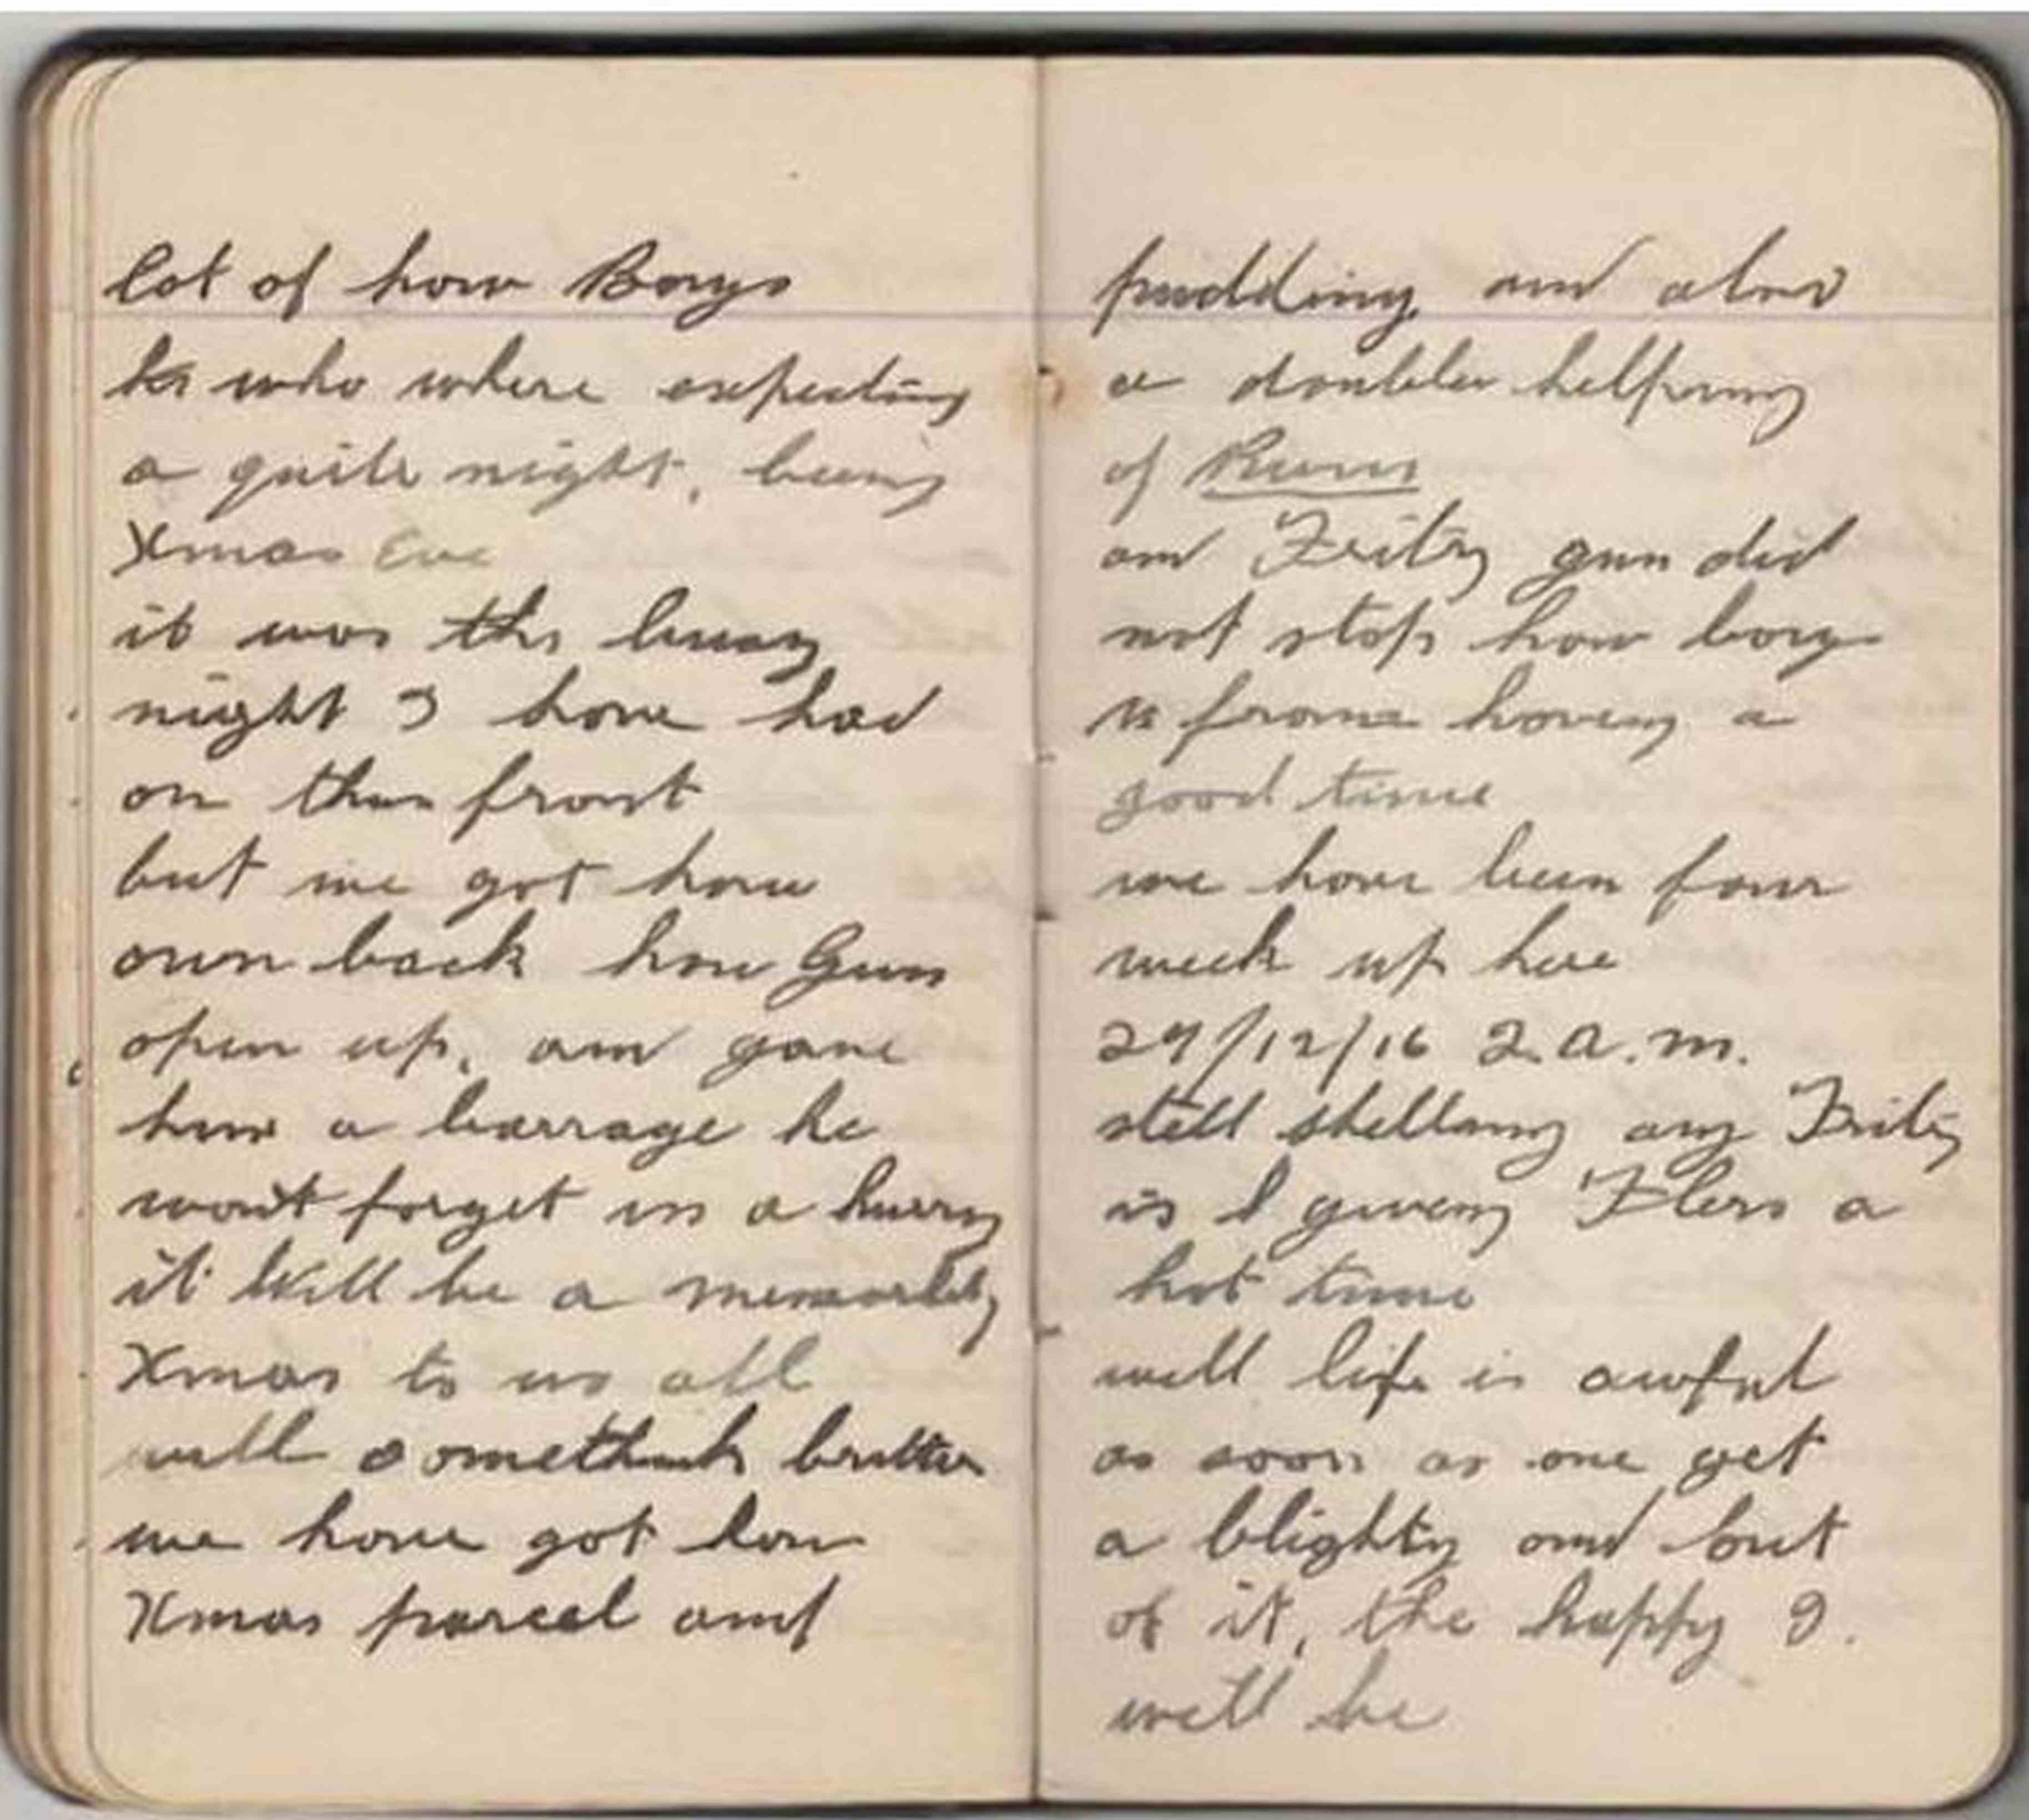 lot of how Boys
who where expecting
a quite night, being
Xmas Eve
it was the busy
night I have had
on the front
but we got how
own back how Guns
open up, and gave
him a barrage he
wont forget in a hurry
it will be a
Xmas to us all
well somethink better
we have got how
Xmas parcel and
pudding, and also
a double helping
of Rum
and Fritz gun did
not stop how boys
from having a
good time
we have been four
week up here
29/12/16 2 a.m.
still shelling away Fritz
is giveng Flers a
hot time
well life is awful
as soon as one get
a blighty and out
of it, the happy I.
will be